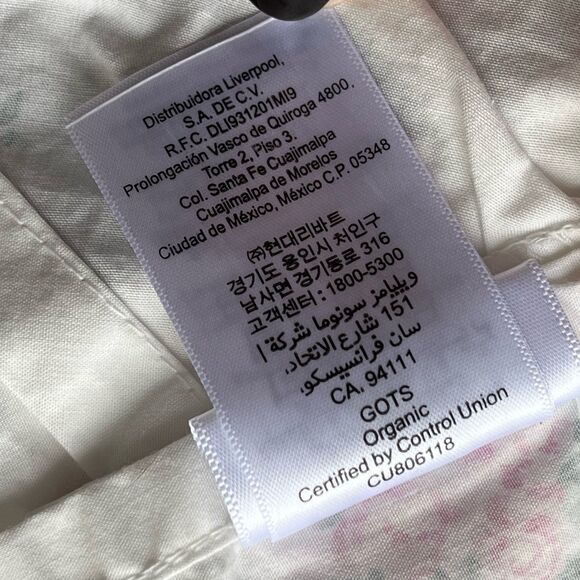 Distribuidora Liverpool,
S.A. DE C.V.
R.F.C. DLI931201MI9
Prolongación Vasco de Quiroga 4800.
Torre 2, Piso 3.
Col. Santa Fe Cuajimalpa
Cuajimalpa de Morelos
Ciudad de México, México C.P. 05348
(주)현대리바트
경기도 용인시 처인구
남사면 경기동로 316
고객센터 : 1800-5300
ويليامز سونوما شركة ا
151 شارع الاتحاد،
سان فرانسيسكو،
CA, 94111
GOTS
Organic
Certified by Control Union
CU806118